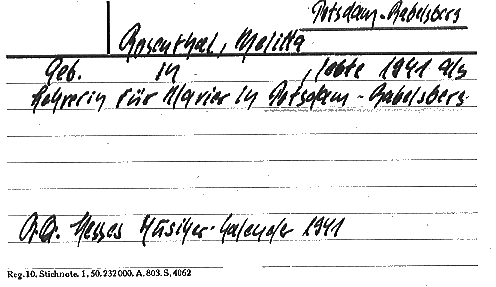 Potsdam-Babelsberg
Rosenthal, Melitta
Geb. in , lebte 1941 als
Lehrerin für Klavier in Potsdam-Babelsberg.
Hesses Musiker-Kalender 1941
Reg.10. Stichnote. 1. 50. 232000. A. 803. S. 4062